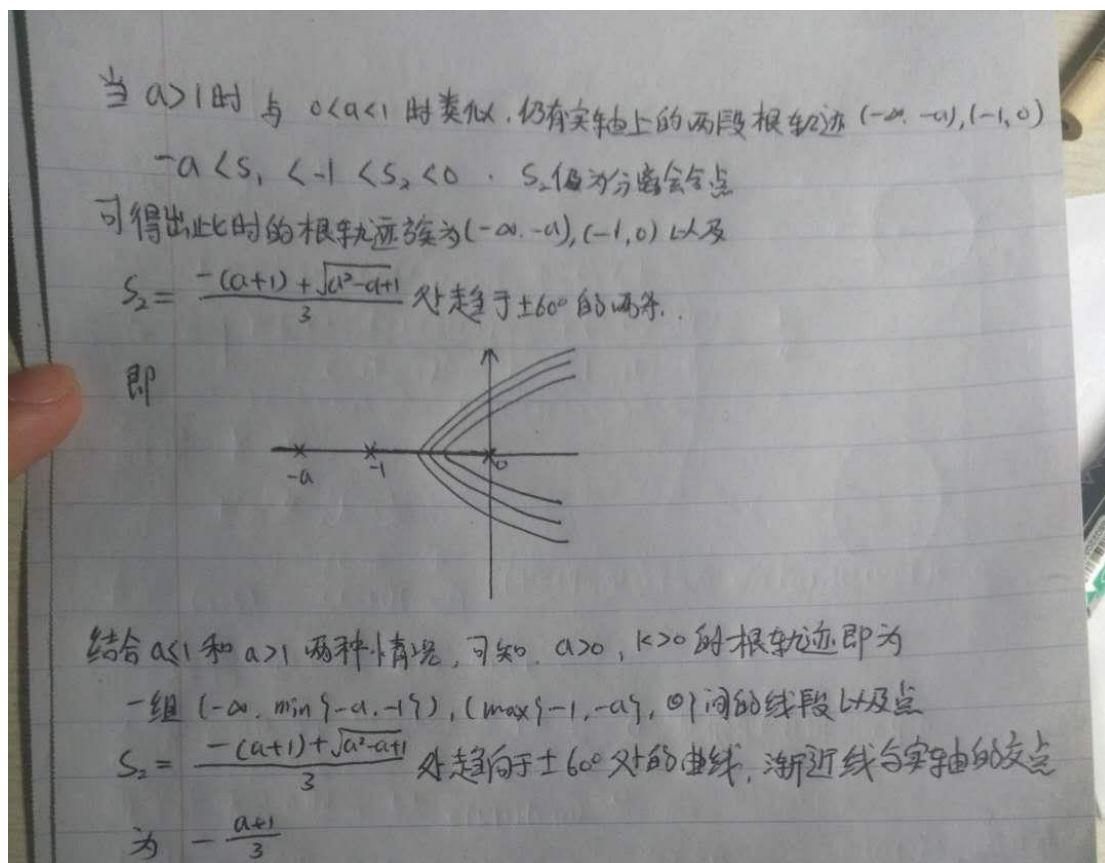 当 a>1时 与 0<a<1 时类似.仍有实轴上的两段根轨迹 (-∞. -a),(-1,0)
-a <S₁ <-1 <S₂<0 . S₂仍为分离会合点
可得出此时的根轨迹族为(-∞.-a),(-1,0) 以及
S₂= \frac{-(a+1)+\sqrt{a²-a+1}}{3} 处趋于±60°的两条.
即
-a -1 0
结合a≤1和a>1两种情况,可知.a>0,K>0的根轨迹即为
一组(-∞.min{-a.-1}),(max{-1,-a},0)间的线段以及点
S₂= \frac{-(a+1)+\sqrt{a²-a+1}}{3} 处趋向于±60°处的曲线,渐近线与实轴的交点
为 -\frac{a+1}{3}